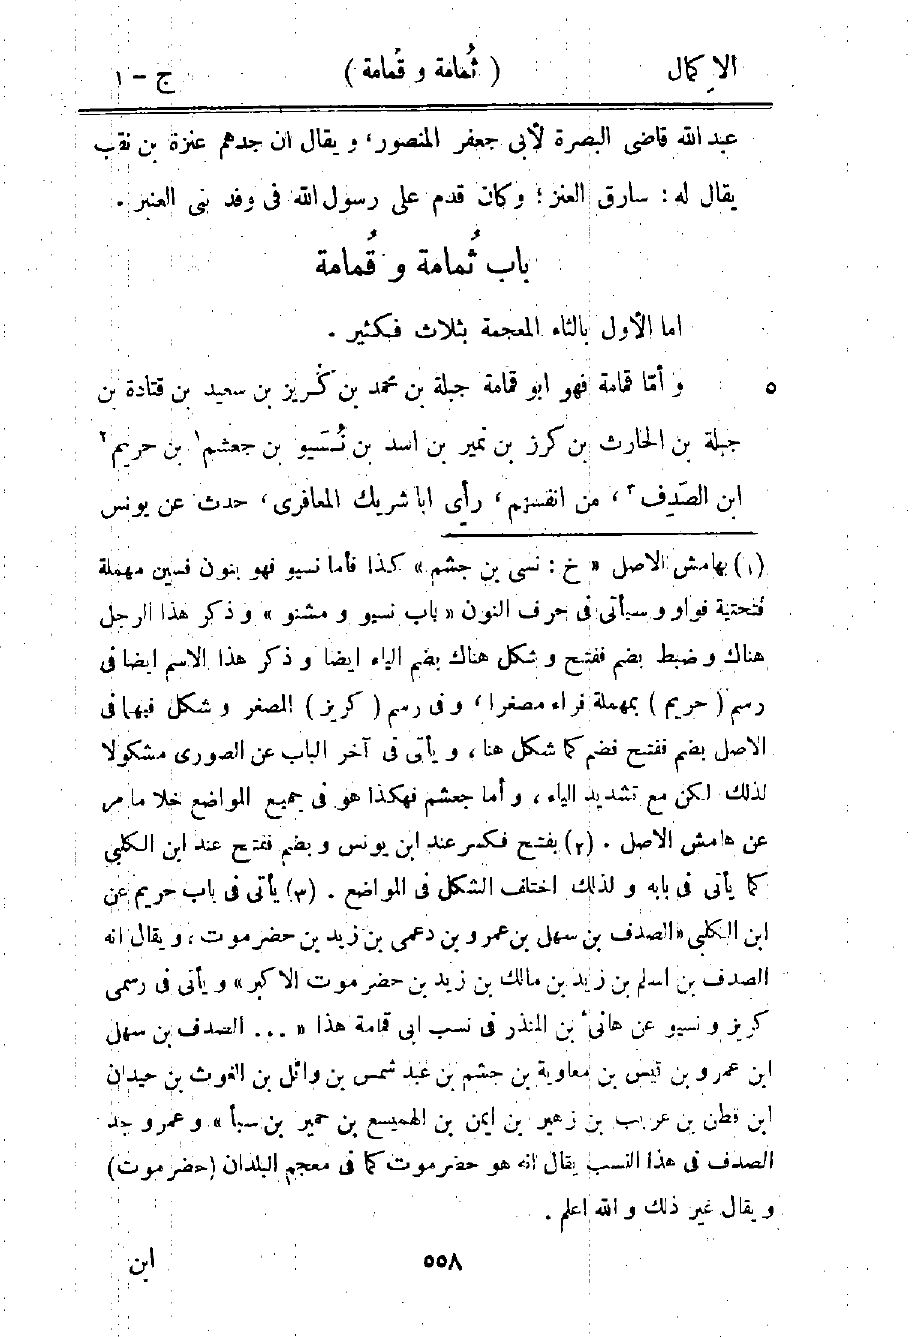 الإكمال ( ثُمامة و قُمامة ) ج – ١
عبد الله قاضى البصرة لأبى جعفر المنصور، و يقال ان جدهم عنزة بن نقب
يقال له: سارق العنز؛ وكان قدم على رسول الله فى وفد بنى العنبر .
باب ثُمامة و قُمامة
اما الأول بالثاء المعجمة بثلاث فكثير .
و أمّا قمامة فهو ابو قمامة جبلة بن محمد بن كُريز بن سعيد بن قتادة بن ٥
جبلة بن الحارث بن كرز بن نمير بن اسد بن نُسَيو بن جعشم١ بن حريم٢
ابن الصَدِف٣، من انفسهم، رأى ابا شريك المعافرى، حدث عن يونس
(١) بهامش الاصل « خ : نسى بن جشم » كذا فأما نسيو فهو بنون فسين مهملة
فتحتية فواو و سيأتى فى حرف النون « باب نسيو و مشنو » و ذكر هذا الرجل
هناك و ضبط بضم ففتح و شكل هناك بضم الياء ايضا و ذكر هذا الاسم ايضا فى
رسم ( حريم ) بمهملة فراء مصغرا، و فى رسم ( كريز ) المصغر و شكل فيهما فى
الاصل بضم ففتح فضم كما شكل هنا، و يأتى فى آخر الباب عن الصورى مشكولا
لذلك لكن مع تشديد الياء، و أما جعشم فهكذا هو فى جميع المواضع خلا ما مر
عن هامش الاصل . (٢) بفتح فكسر عند ابن يونس و بضم ففتح عند ابن الكلبي
كما يأتى فى بابه و لذلك اختلف الشكل فى المواضع . (٣) يأتى فى باب حريم عن
ابن الكلبي «الصدف بن سهل بن عمرو بن دعمى بن زيد بن حضرموت، و يقال انه
الصدف بن اسلم بن زيد بن مالك بن زيد بن حضرموت الاكبر» و يأتى فى رسمى
كريز و نسيو عن هانىء بن المنذر فى نسب ابى قمامة هذا « ... الصدف بن سهل
ابن عمرو بن قيس بن معاوية بن جشم بن عبد شمس بن وائل بن الغوث بن حيدان
ابن قطن بن عريب بن زهير بن ايمن بن الهميسع بن حمير بن سبأ » و عمرو جد
الصدف فى هذا النسب يقال انه هو حضرموت كما فى معجم البلدان (حضرموت)
و يقال غير ذلك و الله اعلم .
٥٥٨ ابن